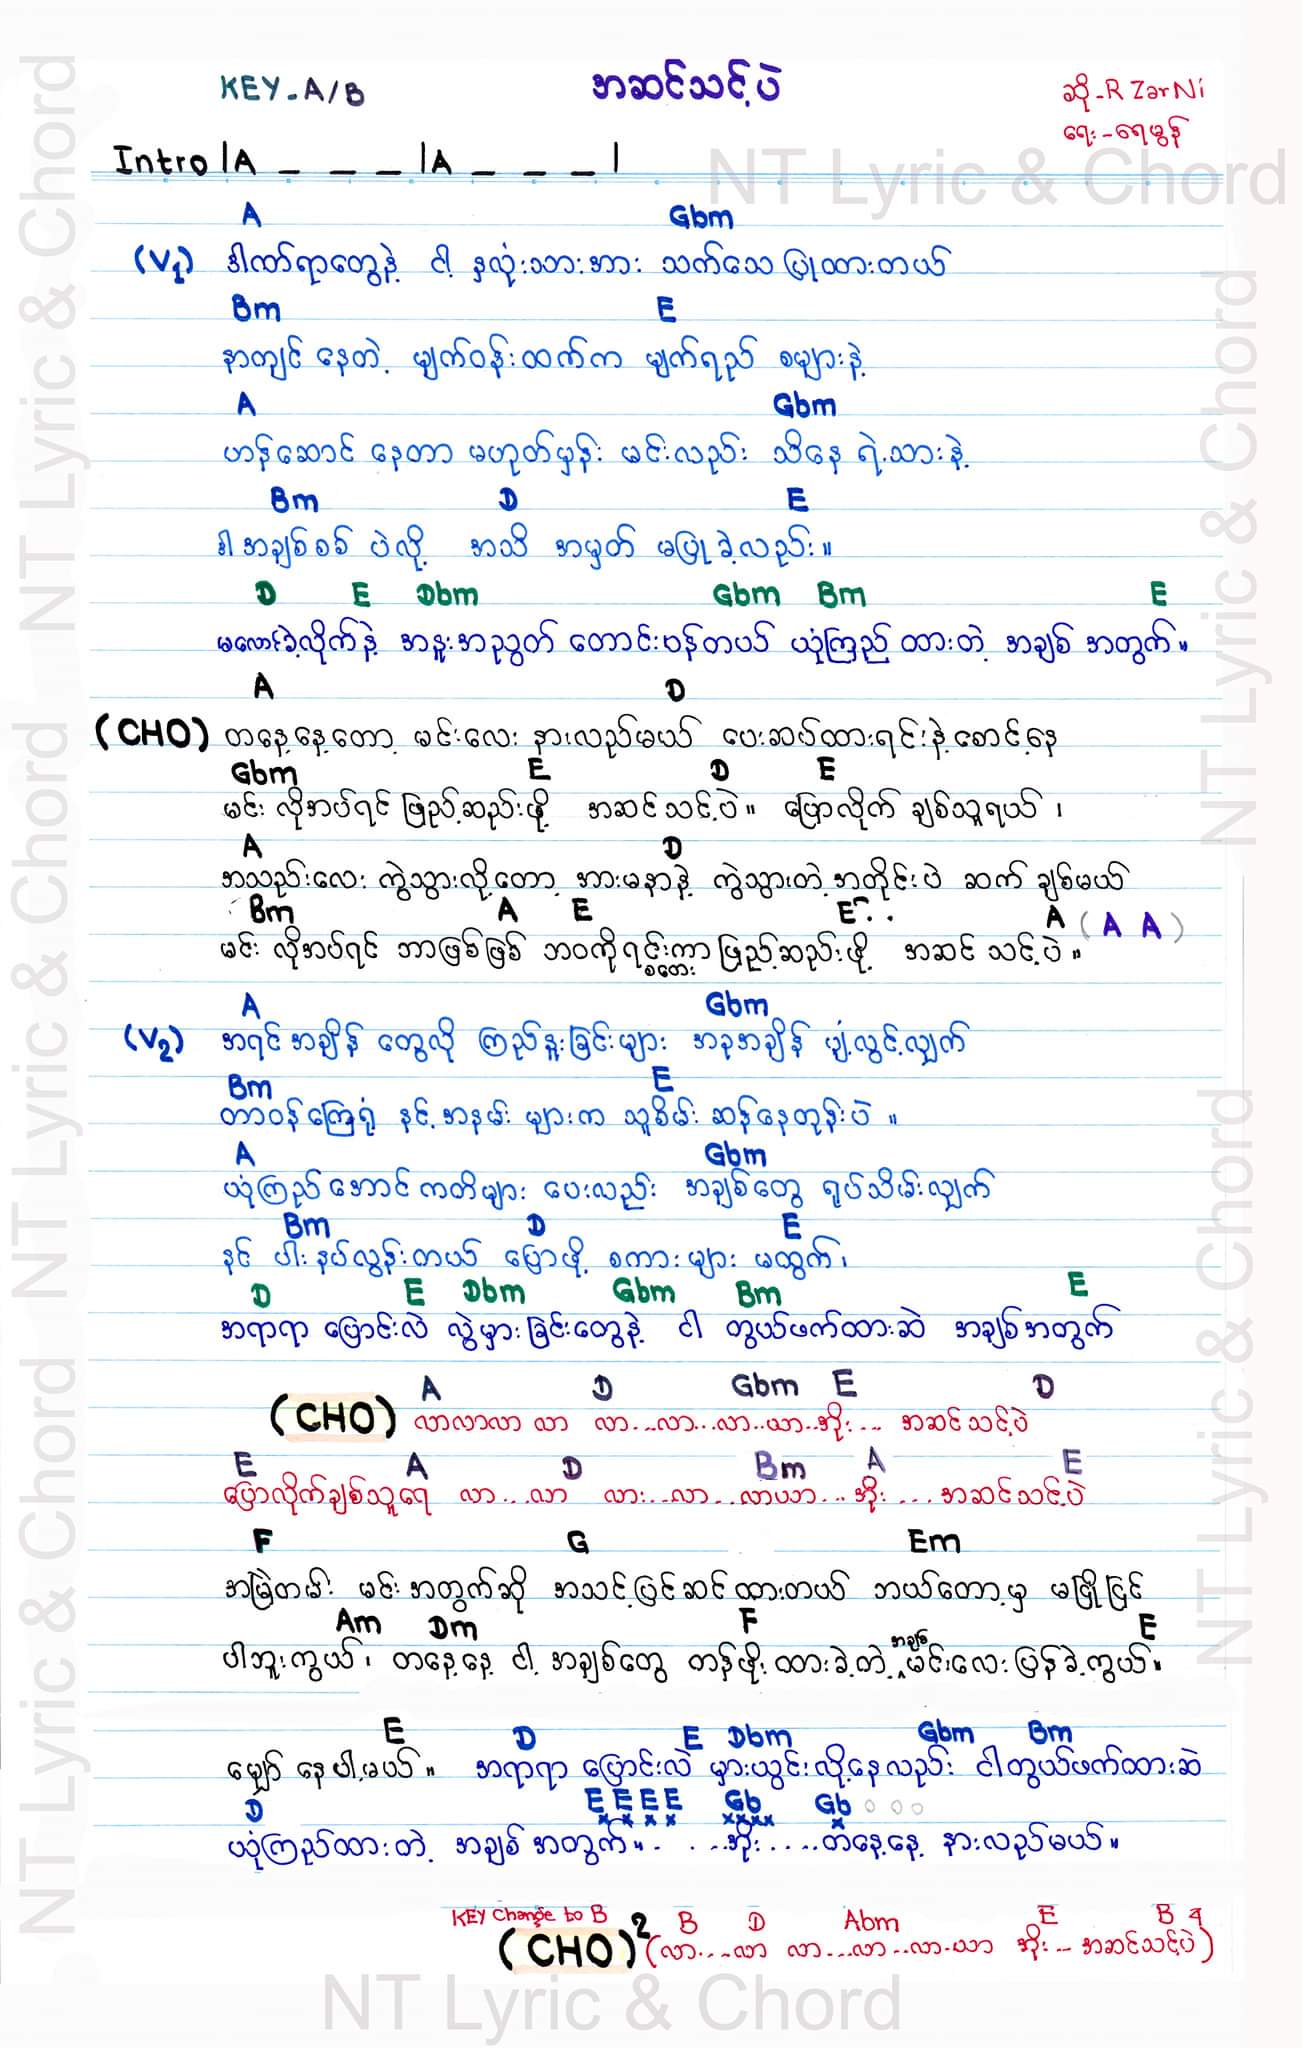 KEY-A/B အဆင်သင့်ပဲ ဆို-R ZarNi
ရေး-ရေမွန်
Intro |A _ _ _ |A _ _ _ |
A Gbm
(V1) ဒါဏ်ရာတွေနဲ့ ငါ့ နှလုံးသားအား သက်သေ ပြုထားတယ်
Bm E
နာကျင် နေတဲ့ မျက်ဝန်းထက်က မျက်ရည် စများနဲ့
A Gbm
ဟန်ဆောင် နေတာ မဟုတ်မှန်း မင်းလည်း သိနေ ရဲ့သားနဲ့
Bm D E
ဒါအချစ်စစ် ပဲလို့ အသိ အမှတ် မပြုခဲ့လည်း။
D E Dbm Gbm Bm E
မထောင်ခဲ့လိုက်နဲ့ အနူးအညွတ် တောင်းပန်တယ် ယုံကြည် ထားတဲ့ အချစ် အတွက်။
A D
(CHO) တနေ့နေ့တော့ မင်းလေး နားလည်မယ် ပေးဆပ်ထားရင်းနဲ့စောင့်နေ
Gbm E D E
မင်း လိုအပ်ရင် ဖြည့်ဆည်းဖို့ အဆင်သင့်ပဲ။ ပြောလိုက် ချစ်သူရယ်၊
A D
အသည်းလေး ကွဲသွားလို့တော့ အားမနာနဲ့ ကွဲသွားတဲ့အတိုင်းပဲ ဆက် ချစ်မယ်
Bm A E E.. A (A A)
မင်း လိုအပ်ရင် ဘာဖြစ်ဖြစ် ဘဝကိုရင်းကာ ဖြည့်ဆည်းဖို့ အဆင် သင့်ပဲ။
စတေး
A Gbm
(V2) အရင်အချိန် တွေလို ကြည်နူးခြင်းများ အခုအချိန် ပျံ့လွင့်လျှက်
Bm E
တာဝန်ကြေရုံ နင့်အနမ်း များက သူစိမ်း ဆန်နေတုန်းပဲ။
A Gbm
ယုံကြည်အောင် ကတိများ ပေးလည်း အချစ်တွေ ရုပ်သိမ်းလျှက်
Bm D E
နင် ပါးနပ်လွန်းတယ် ပြောဖို့ စကားများ မထွက်၊
D E Dbm Gbm Bm E
အရာရာ ပြောင်းလဲ လွဲမှားခြင်းတွေနဲ့ ငါ တွယ်ဖက်ထားဆဲ အချစ်အတွက်
A D Gbm E D
(CHO) လာလာလာ လာ လာ...လာ...လာ..ယာ..အိုး... အဆင်သင့်ပဲ
E A D Bm A E
ပြောလိုက်ချစ်သူရေ လာ...လာ လား..လာ...လာယာ...အိုး ....အဆင်သင့်ပဲ
F G Em
အမြဲတမ်း မင်းအတွက်ဆို အသင့်ပြင်ဆင်ထားတယ် ဘယ်တော့မှ မငြိုငြင်
Am Dm F E
ပါဘူးကွယ်၊ တနေ့နေ့ ငါ့ အချစ်တွေ တန်ဖိုးထားခဲ့တဲ့ အချစ် မင်းလေး ပြန်ခဲ့ကွယ်။
E D E Dbm Gbm Bm
မျှော် နေပါ့မယ်။ အရာရာ ပြောင်းလဲ မှားယွင်းလို့နေလည်း ငါတွယ်ဖက်ထားဆဲ
D E E E E Gb Gb ○ ○ ○
x x x x xxxx x
ယုံကြည်ထားတဲ့ အချစ် အတွက်။.. ...အိုး.....တနေ့နေ့ နားလည်မယ်။
KEY Change to B B D Abm E B 4
(CHO)2 (လာ...လာ လာ...လာ..လာ.ယာ အိုး... အဆင်သင့်ပဲ)
NT Lyric & Chord
NT Lyric & Chord
NT Lyric & Chord
NT Lyric & Chord
NT Lyric & Chord
NT Lyric & Chord
NT Lyric & Chord
NT Lyric & Chord